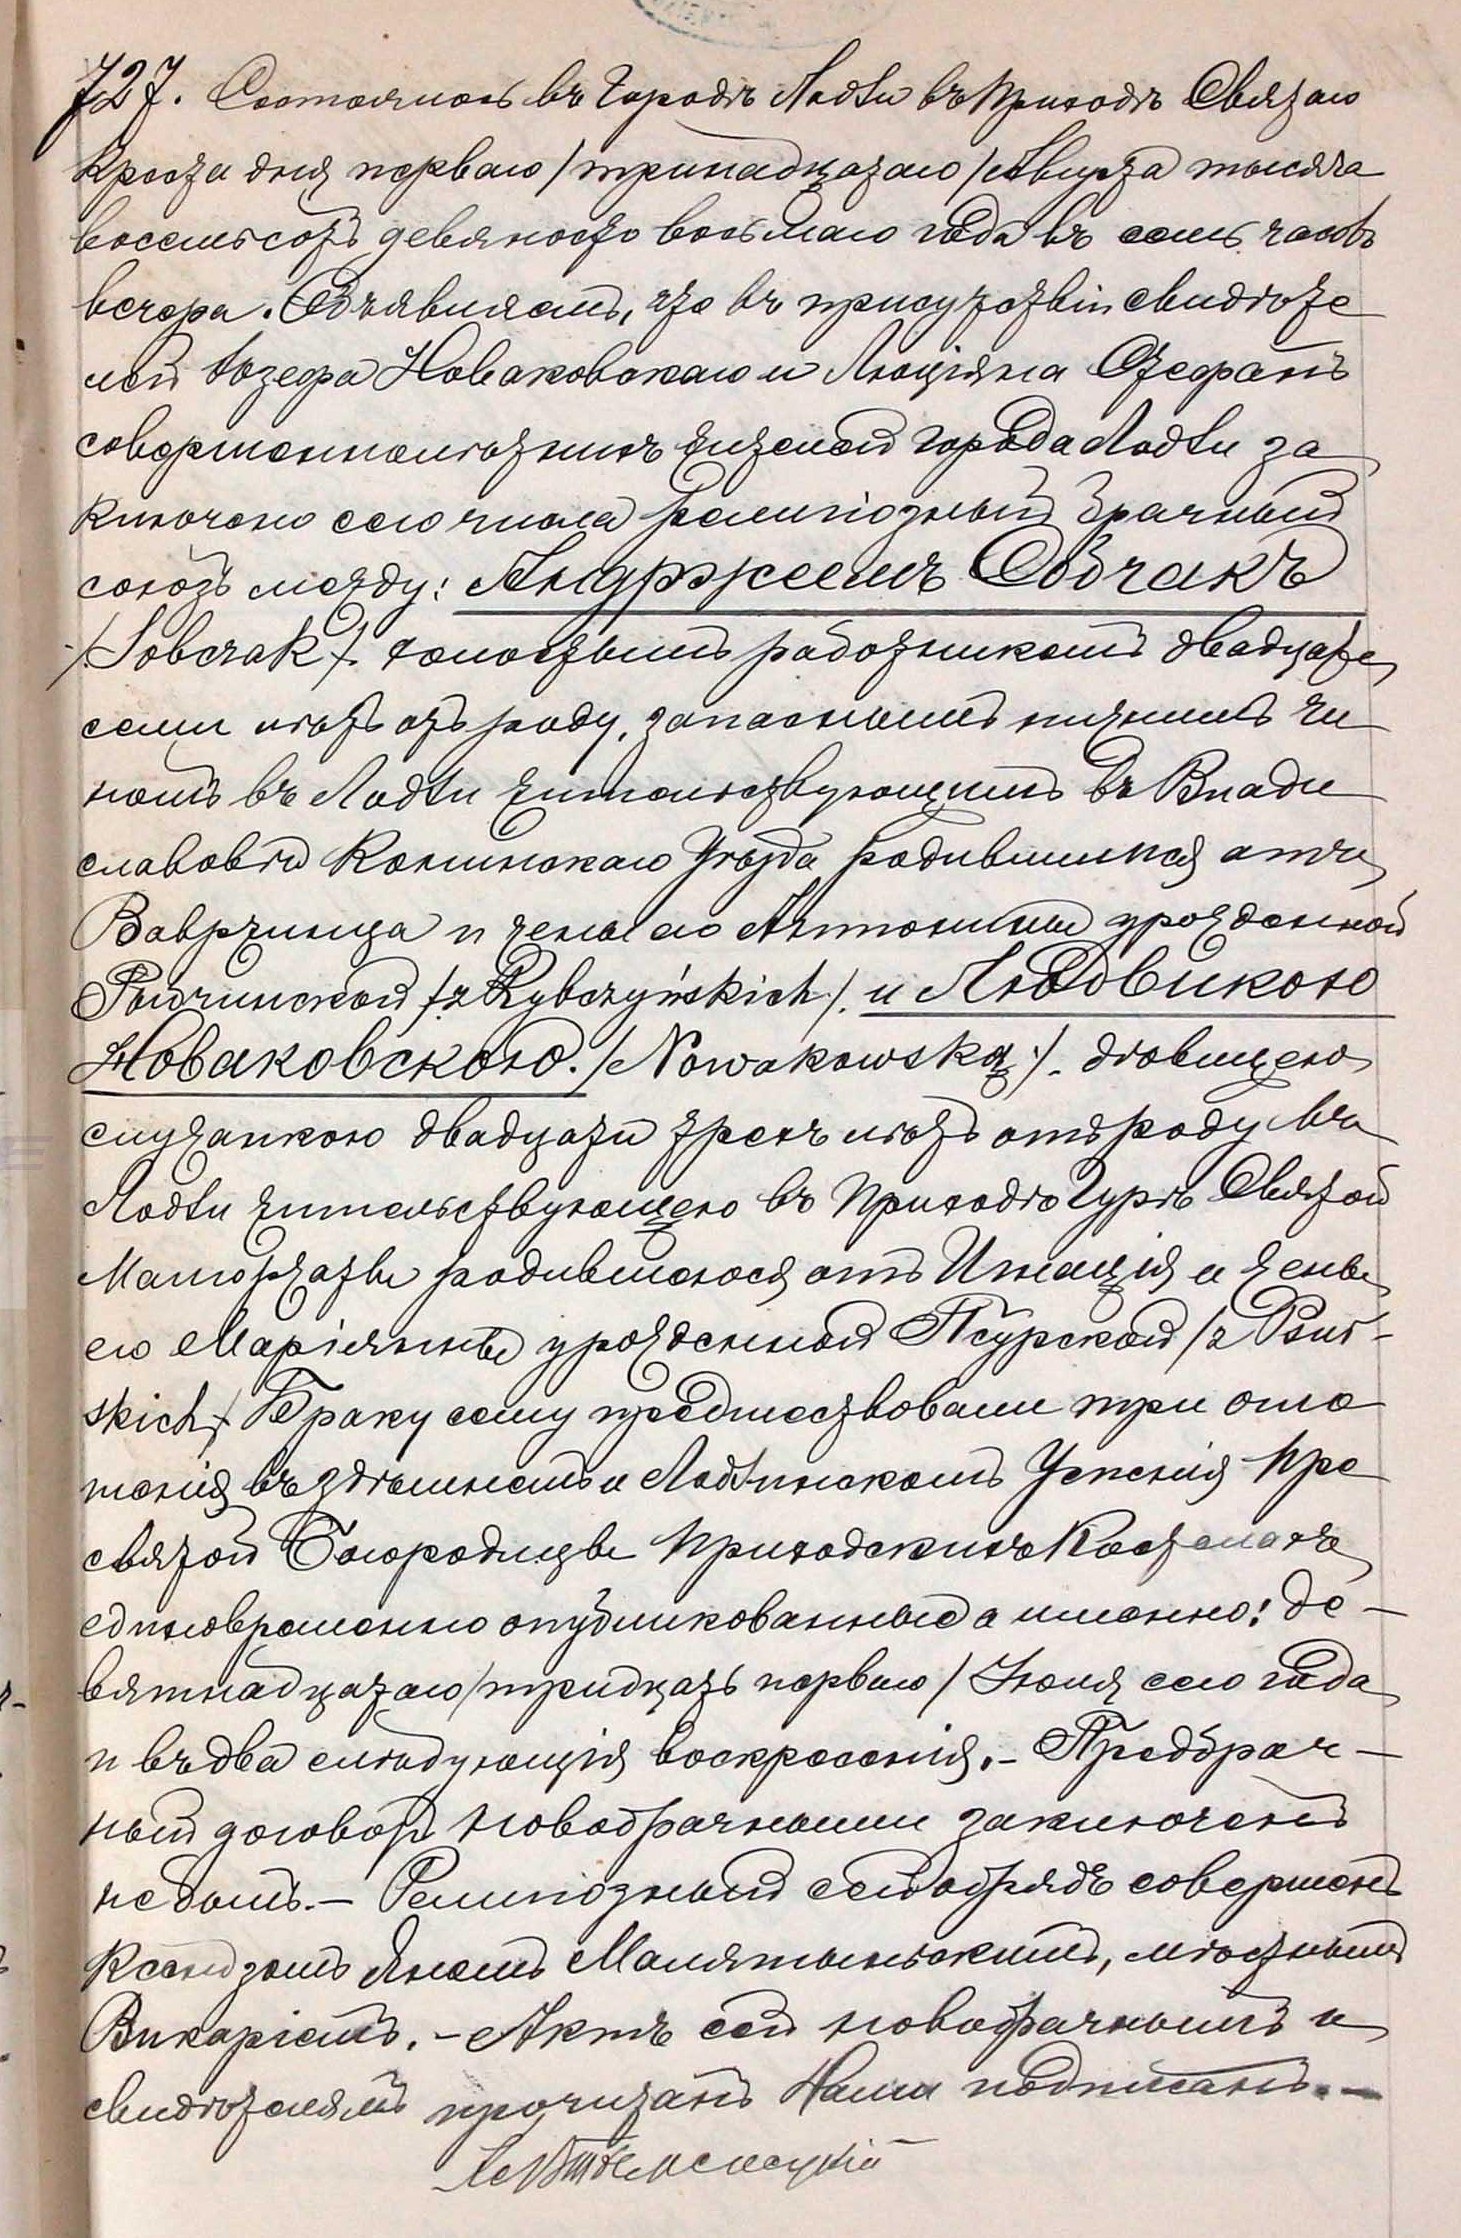 727. Состоялось въ городѣ Лодзи въ приходѣ Святаго
Креста дня перваго /тринадцатаго/ Августа тысяча
восемьсотъ девяносто восьмаго года въ семь часовъ
вечера. Объявляемъ, что въ присутствіи свидѣте
лей Іозефа Новаковскаго и Люціяна Стефанъ
совершеннолѣтнихъ жителей города Лодзи за
ключено сего числа религіозный брачный
союзъ между: Андржеемъ Собчакъ
/Sobczak/. холостымъ работникомъ двадцати
семи лѣтъ отъ роду, запаснымъ нижнимъ чи
номъ въ Лодзи жительствующимъ въ Влади
славовѣ Конинскаго Уѣзда родившимся отъ
Вавржинца и жены его Антонины урожденной
Рыбчинской /z Rybczyńskich/. и Людвикою
Новаковскою. /Nowakowską/. дѣвицею
служанкою двадцати трехъ лѣтъ отъ роду въ
Лодзи жительствующею въ приходѣ Гурѣ Святой
Малгоржаты родившеюся отъ Игнація и жены
его Маріянны урожденной Псурской /z Psur-
skich/ Браку сему предшествовали три огла
шенія въ здѣшнемъ и Лодзинскомъ Успенія Пре
святой Богородицы приходскихъ Костелахъ
единовременно опубликованные а именно: де-
вятнадцатаго /тридцать перваго/ Іюля сего года
и въ два слѣдующія воскресенія. – Предбрач-
ный договоръ новобрачными заключенъ
не былъ. – Религіозный сей обрядъ совершенъ
Ксендзомъ Яномъ Малятыньскимъ, мѣстнымъ
Викаріемъ. – Актъ сей новобрачнымъ и
свидѣтелямъ прочитанъ Нами подписанъ. –